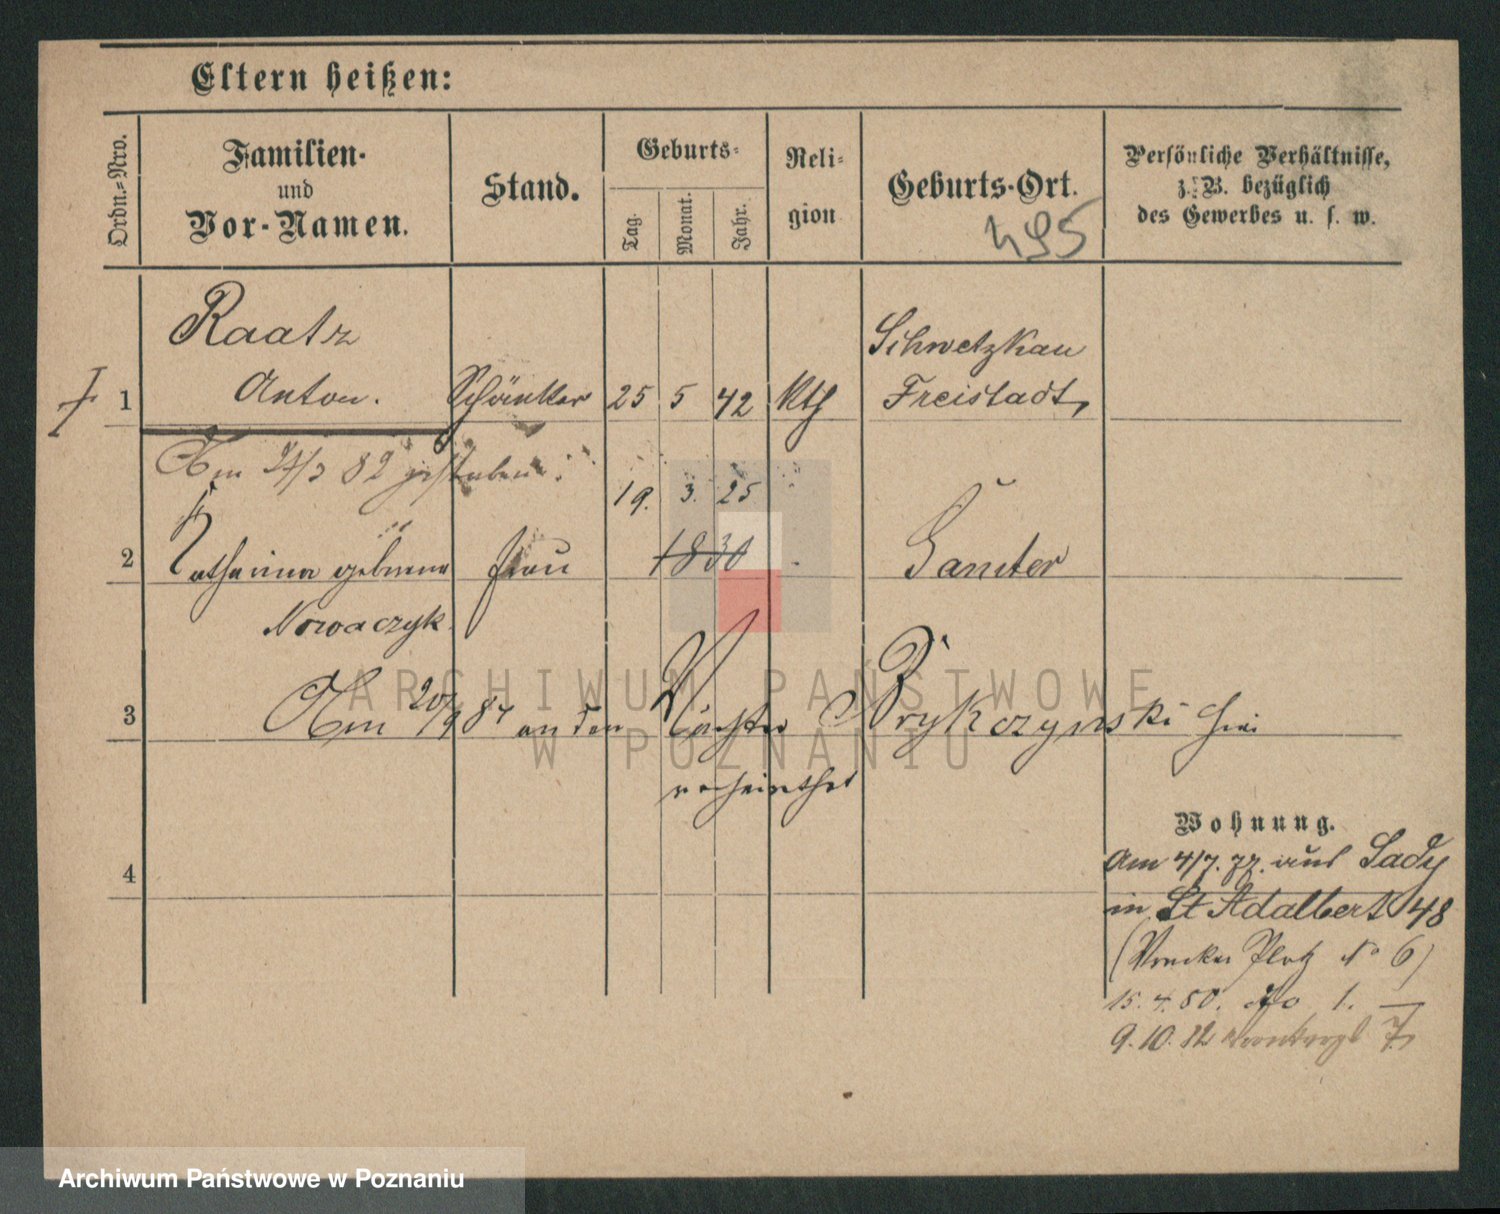 Eltern heißen:
Ordn.=Nro.
Familien-
und
Vor-Namen.
Stand.
Geburts=
Tag.
Monat.
Jahr.
Reli=
gion
Geburts-Ort.
495
Persönliche Verhältnisse,
z. B. bezüglich
des Gewerbes u. s. w.
Raatz
Schwetzkau
1 Anton. Schänker 25 5 42 kth Freistadt,
Am 24/3 82 gestorben.
19. 3. 25
2 Katharina geborene Frau 1830 Samter
Nowaczyk
3 Am 20/9 84 an den Wächter Brykczynski hier
verheirathet
Wohnung.
4
Am 4/7. 77. aus Sady
in St Adalbert 48
(Platz No 6)
15. 4. 80. do 1. —
9. 10. 82 7
ARCHIWUM PAŃSTWOWE
W POZNANIU
Archiwum Państwowe w Poznaniu